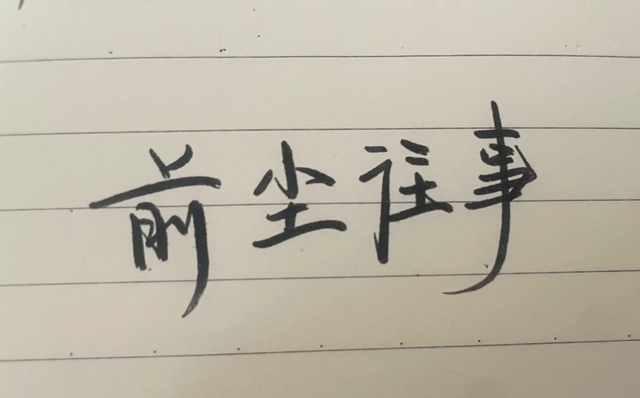 前尘往事